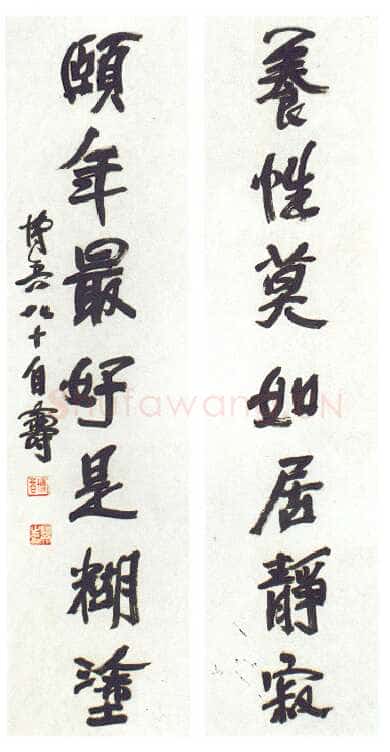 養性莫如居靜寂
頤年最好是糊塗
博吾八十自壽
Shufawang.CN